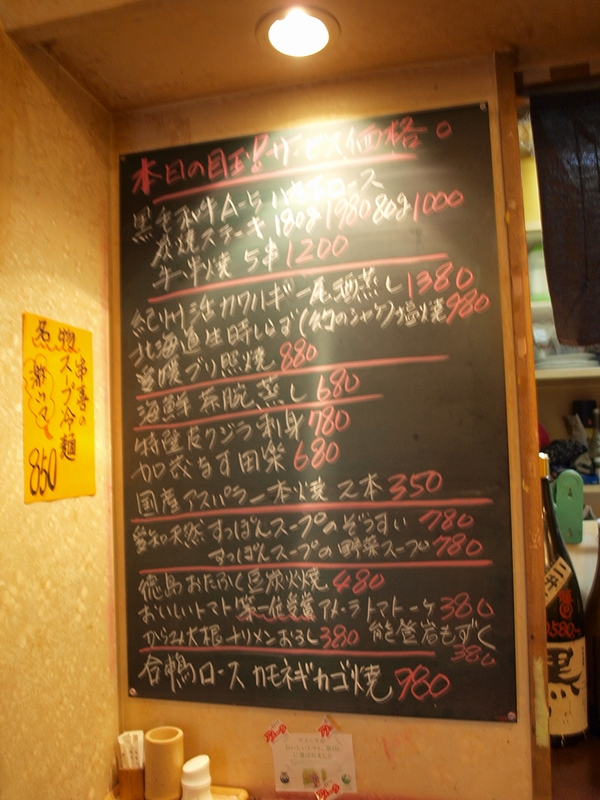 本日の目玉!サービス価格。
黒毛和牛A-5 ロース
炭焼ステーキ 180g 1980 80g 1000
牛串焼 5串 1200
紀州活カワハギ一尾酒蒸し 1380
北海道生時しらず(幻のシャケ)塩焼 980
愛媛ブリ照焼 880
海鮮茶碗蒸し 680
特陸皮クジラ刺身 780
加茂なす田楽 680
国産アスパラ一本焼 2本 350
愛知天然すっぽんスープのぞうすい 780
すっぽんスープの野菜スープ 780
徳島おたふく豆炭火焼 480
おいしいトマト第一位当賞アメーラトマト一ケ 380
からみ大根チリメンおろし 380 能登岩もずく
380
合鴨ロース カモネギカゴ焼 980
名物
串喜の
スープ冷麺
850
黒